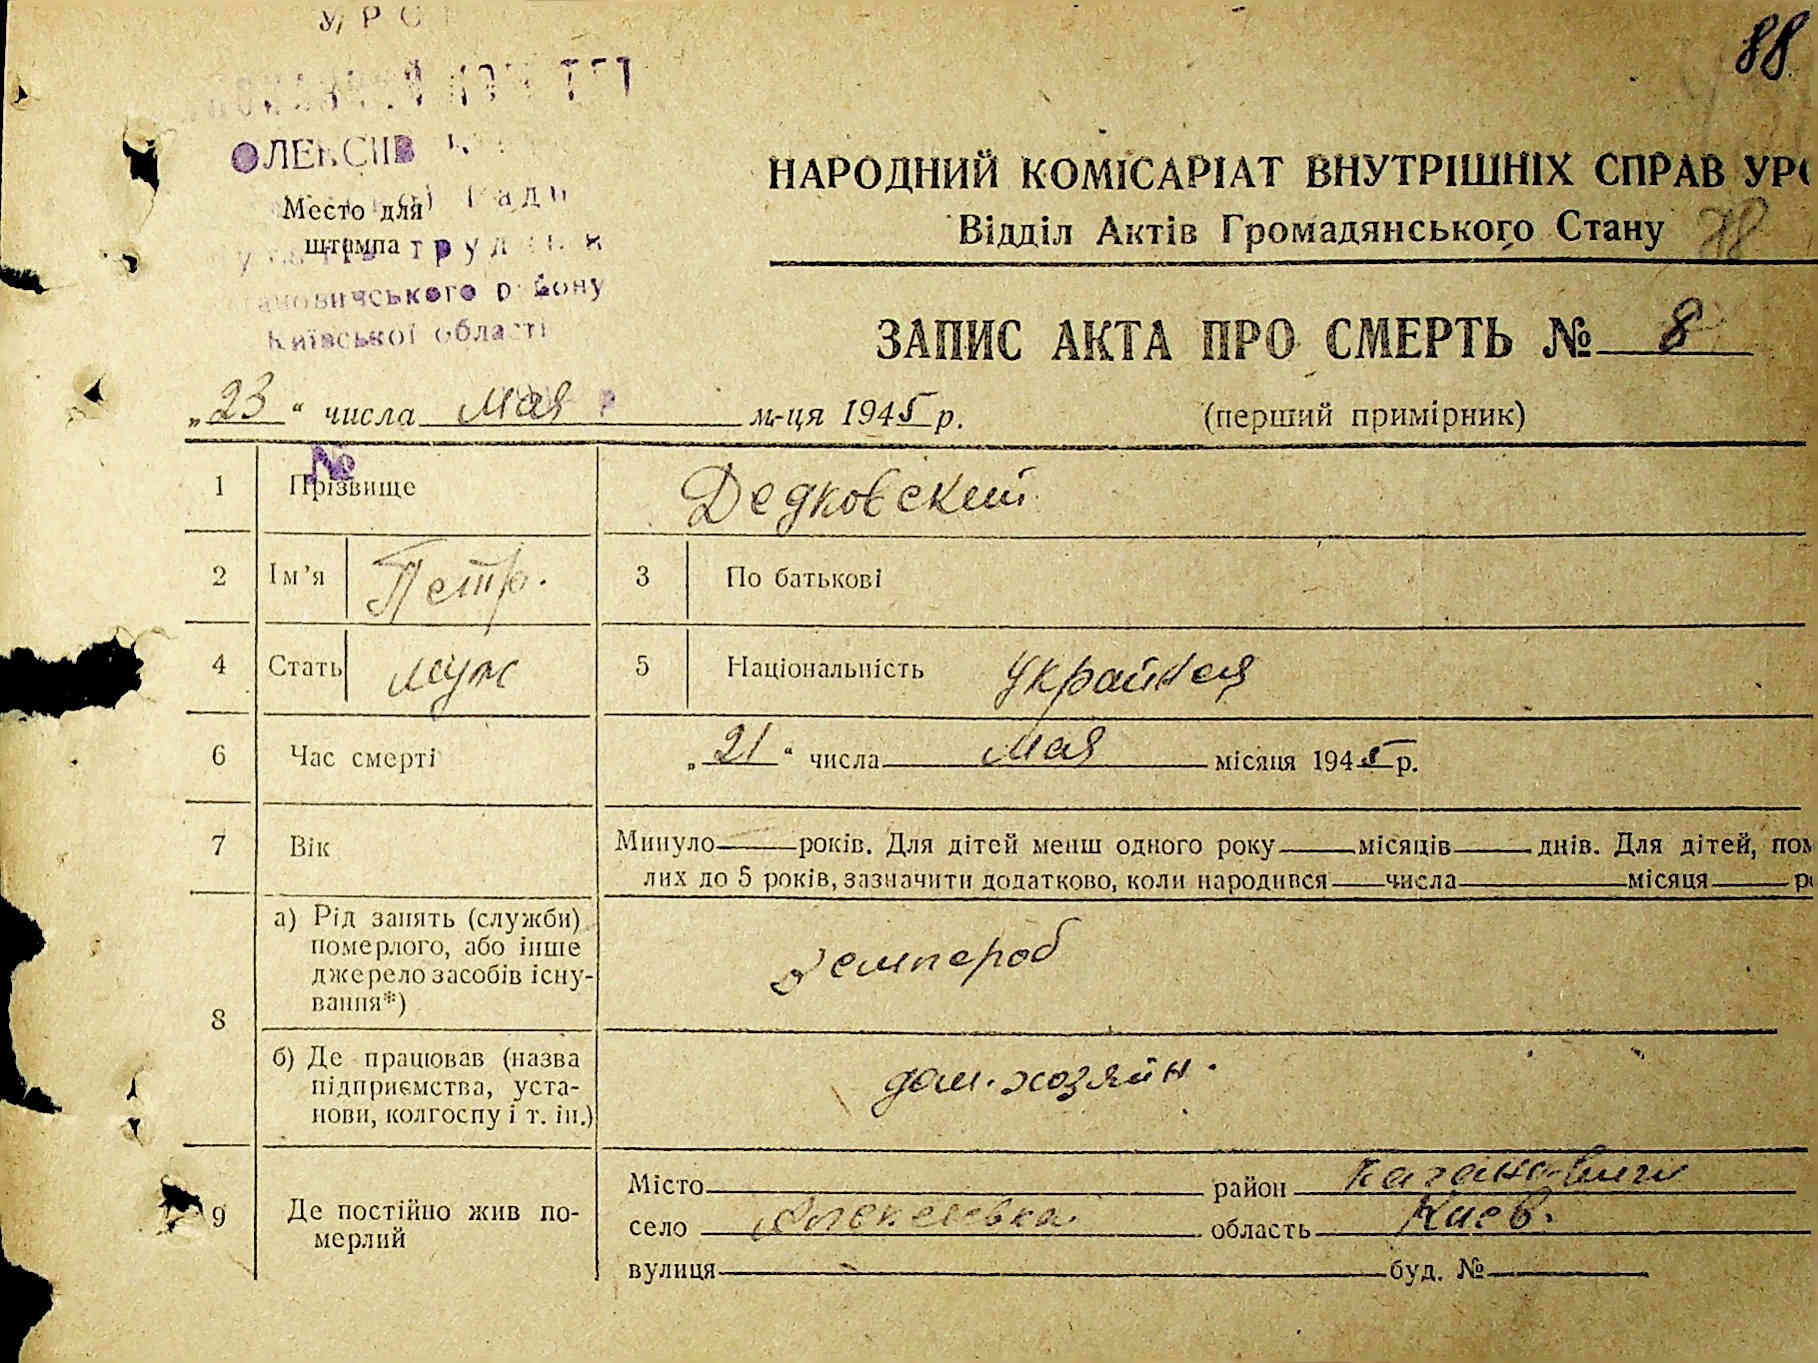 У Р С
88
НАРОДНИЙ КОМІСАРІАТ ВНУТРІШНІХ СПРАВ УРС
Місто для
штампа
Відділ Актів Громадянського Стану 78
району
Київської області
ЗАПИС АКТА ПРО СМЕРТЬ № 8
„23“ числа мая м-ця 1945 р. (перший примірник)
№
1 Прізвище Дедковский
2 Ім’я Петр. 3 По батькові
4 Стать муж 5 Національність Украйнец
6 Час смерті „21“ числа мая місяця 1945 р.
7 Вік Минуло років. Для дітей менш одного року місяців днів. Для дітей, пом
лих до 5 років, зазначити додатково, коли народився числа місяця р
8 а) Рід занять (служби)
померлого, або інше
джерело засобів існу-
вання*)
б) Де працював (назва
підприємства, уста-
нови, колгоспу і т. ін.)
дом. хозяйн.
9 Де постійно жив по-
мерлий
Місто район
село Алексеевка область Киев.
вулиця буд. №